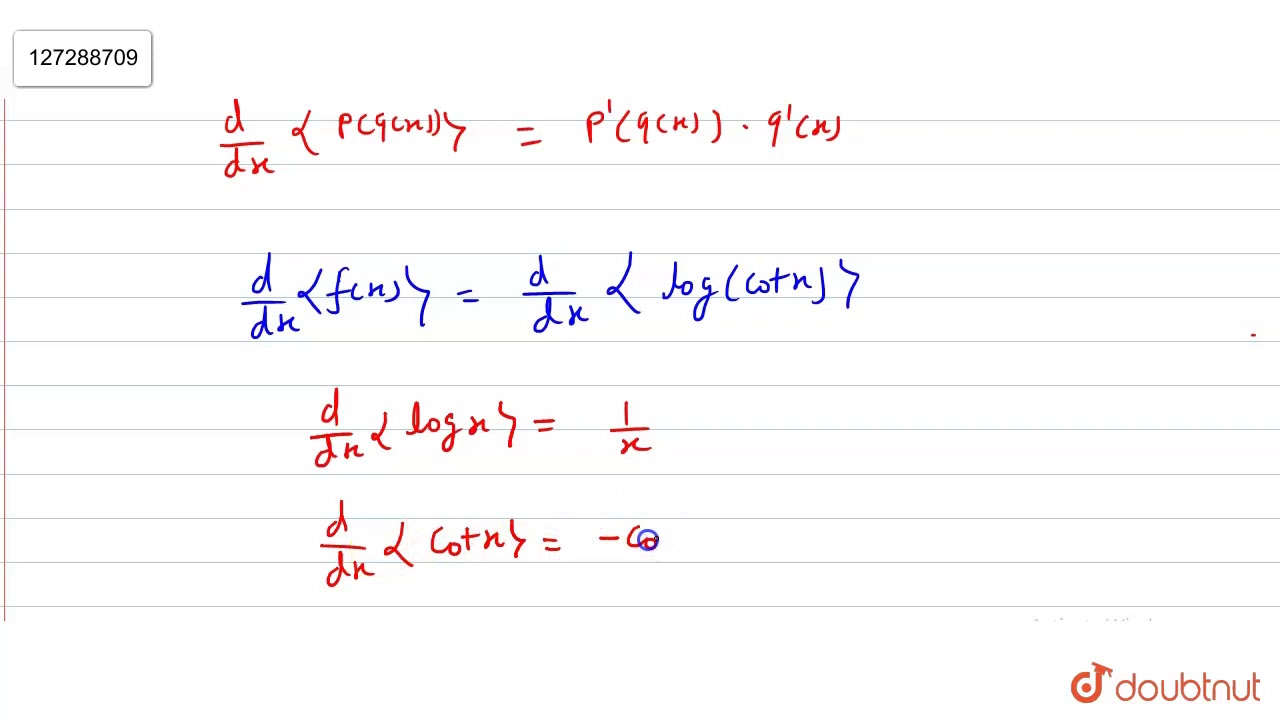 127288709
d/dx { P(q(x)) } = P'(q(x)) . q'(x)
d/dx { f(x) } = d/dx { log(cotx) }
d/dx { logx } = 1/x
d/dx { cotx } = -co
doubtnut